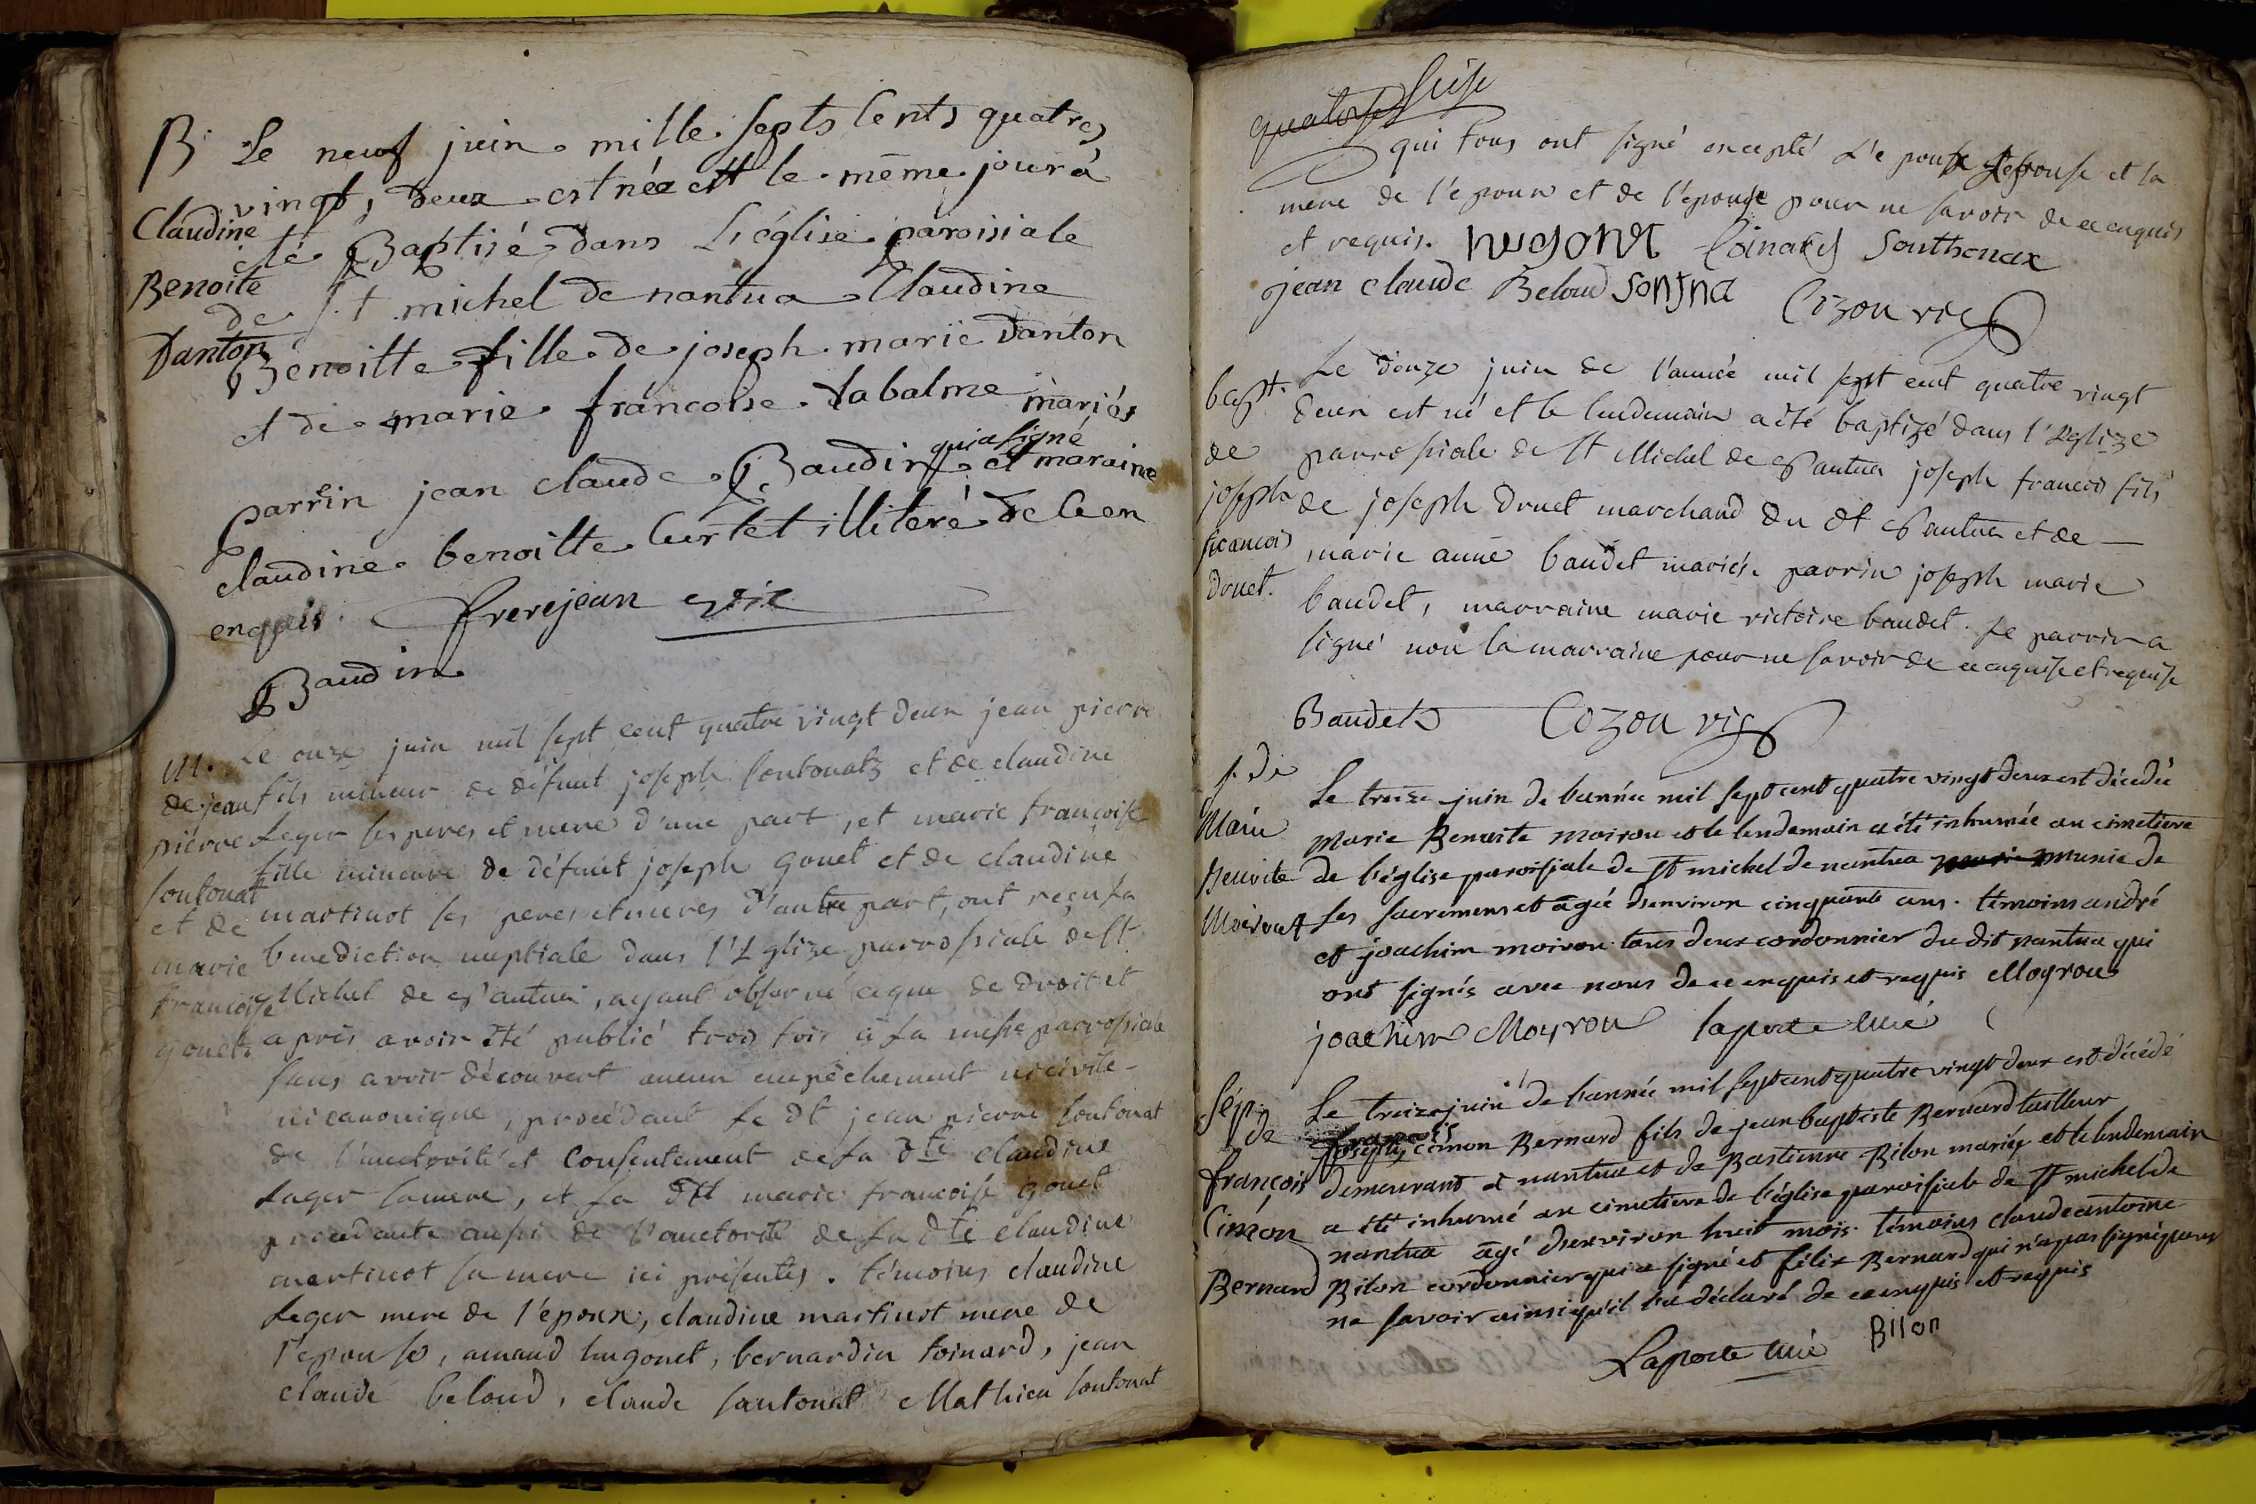 B. Le neuf juin mille septs cents quatres
vingt, deux est née et le même jour à
Claudine
été Baptisé dans L'église paroisiale
Benoite
de St michel de nantua Claudine
Danton
Benoitte fille de joseph marie Danton
et de marie françoise Labalme mariés
qui a signé
parrin jean claude Baudin et maraine
claudine benoitte Curtet illiteré de ce en
enquis frerejean vic
Baudin
M. Le onze juin mil sept cent quatre vingt deux jean pierre
de jean fils mineur de défunt joseph Soutonatz et de claudine
pierre Leger ses peres et mere d'une part, et marie françoise
fille mineure de défunt joseph Gonet et de claudine
Soutonat
et de martinot ses peres et meres d'autre part, ont reçu la
marie benediction nuptiale dans l'Eglize parrossiale de St
françoise Michel de Nantua, ayant observé ce que de droit et
gonet après avoir été publié trois fois à la messe parrossiale
sans avoir découvert aucun empêchement ni civile
ni canonique, procédant le dt jean pierre Soutonat
de l'auctorité et Consentement de la dte claudine
Leger sa mere, et la dte marie françoise gonet
procedante aussi de l'auctorité de la dte claudine
martinot sa mere ici présentes. témoins claudine
Leger mere de l'époux, claudine martinot mere de
l'epouse, amand hugonet, bernardin toinard, jean
claude beloud, claude soutonat Mathieu soutonat
quatorse Seise
qui tous ont signé excepté L'epouse et la
mere de l'époux et de l'épouse pour ne savoir de ce enquis
et requis. hugonet toinard Southonax
jean claude Beloud sontna Cozon vic
Le douze juin de l'année mil sept cent quatre vingt
bapt. deux est né et le lendemain a été baptizé dans l'Eglize
de parrossiale de St Michel de Nantua joseph francois fils
joseph de joseph Druet marchand du dt Nantua et de
francois marie anne baudet mariés. parrin joseph marie
Druet. baudet, marraine marie victoire baudet. Le parrin a
signé non la marraine pour ne savoir de ce enquise et requise
Baudet Cozon vic
s. de
Le treize juin de l'année mil sept cent quatre vingt deux est décédée
Marie Marie Benoite moirou et le lendemain a été inhumée au cimetiere
Benoite de l'église paroissiale de St michel de nantua munie de
Moirout Les sacremens et agée d'environ cinquante ans. témoins andré
et joachim moirou tous deux cordonnier du dit nantua qui
ont signés avec nous de ce enquis et requis Moyrou
joachim Moyrou laporte curé
Sép. Le treize juin de l'année mil sept cent quatre vingt deux est décédé
de françois joseph cimon Bernard fils de jean baptiste Bernard tailleur
françois demeurant à nantua et de Bastienne Bilon mariés et le lendemain
Cimeon a été inhumé au cimetiere de l'église paroissiale de St michel de
nantua agé d'environ huit mois. témoins claude antoine
Bernard Bilon cordonnier qui a signé et félix Bernard qui n'a pas signé pour
ne savoir ainsi qu'il l'a déclaré de ce enquis et requis
Laporte curé Bilon